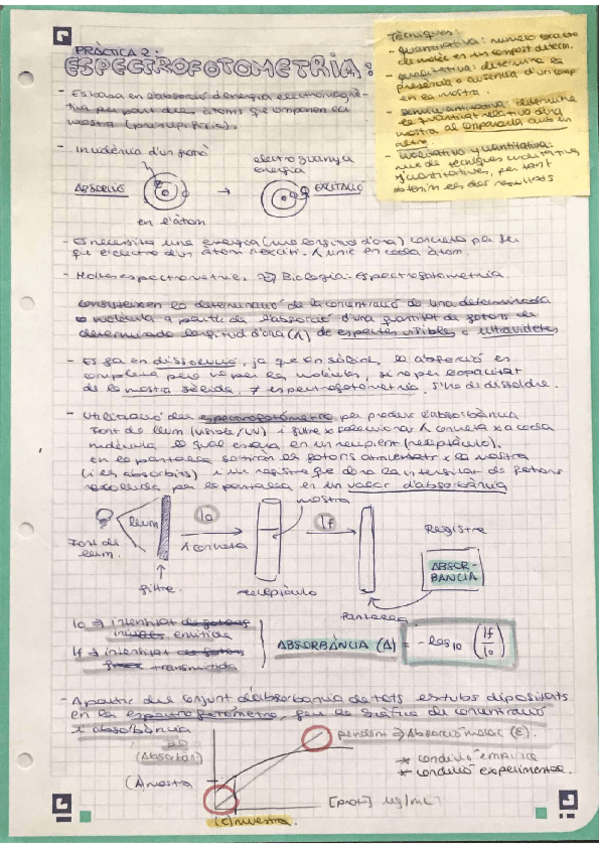 PRÀCTICA 2:
ESPECTROFOTOMETRIA:
Tècniques:
- quantitativa: número exacte
de molèc en un compost determ.
- qualitativa: determina la
presència o ausència d'un comp.
en la mostra.
- semiquantitativa: determina
la quantitat relativa d'una
mostra al comparada amb un
altre.
- qualitativa y quantitativa:
mix de tècniques qualitativa
y quantitatives, per tant
obtenim els dos resultats
- Es basa en l'absorció d'energia electromagnè-
tica per part dels àtoms que componen la
mostra
- Incidència d'un fotó
electró guanya
energia
ABSORCIÓ → EXCITACIÓ
en l'àtom
- Es necessita una energia (una longitud d'ona) concreta per fer
que l'electró d'un àtom s'exciti. λ única en cada àtom.
- Moltes espectrometries, Biologia: Espectrofotometria.
Consisteix en la determinació de la concentració de una determinada
molècula a partir de l'absorció d'una quantitat de fotons de
determinada longitud d'ona (λ) de espectres visibles o ultravioletes
- Es fa en dissolució, ja que en sòlid, la absorció es
complexa però no per la molècula, si no per l'opacitat
de la mostra sòlida, ≠ espectrofotometria. S'ha de dissoldre.
- Utilització del espectrofotòmetre per produir l'absorbància
Font de llum (visible/UV) i filtre x seleccionar λ concreta x a cada
molècula, la qual estarà en un recipient (receptàculo).
en la pantalla sortiran els fotons atravessats x la mostra
(i els absorbits) i un registre que dona la intensitat de fotons
recollida per la pantalla en un valor d'absorbància
mostra
llum
Io
If
Registre
Font de
llum.
λ concreta
ABSOR-
BANCIA
filtre.
receptàculo
Pantalla
Io → intensitat de fotons
emitida
If → intensitat de fotons
transmitida
ABSORBÀNCIA (A) = -log10 (If/Io)
- A partir del conjunt d'absorbància de tots els tubs dipositats
en la espectrofotòmetre, fem la gràfica de concentració
x absorbància
pendent → Absorció molar (ε).
(Absorban)
* condició empírica
* condició experimental.
(A) mostra
[prot] µg/mL
(c) mostra.